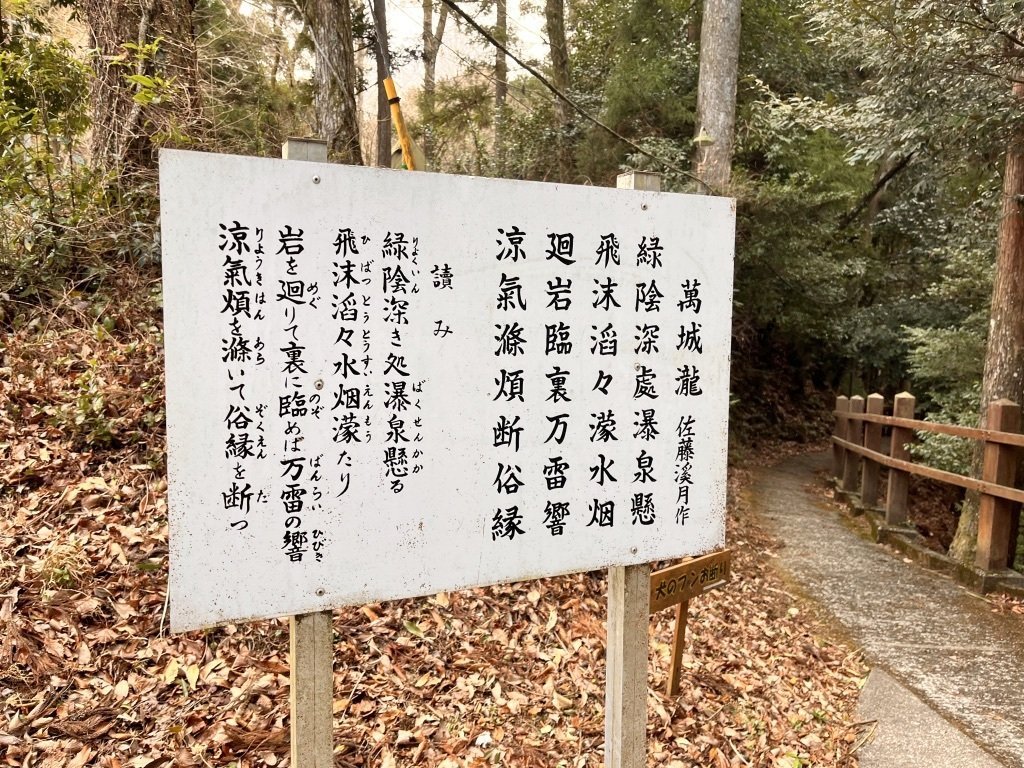 萬城瀧 佐藤溪月作
緑陰深處瀑泉懸
飛沫滔々濛水烟
廻岩臨裏万雷響
涼氣滌煩断俗縁
讀み
りょくいん ばくせんかか
緑陰深き処瀑泉懸る
ひばつとうとうすいえんもう
飛沫滔々水烟濛たり
めぐ のぞ ばんらい ひびき
岩を廻りて裏に臨めば万雷の響
りょうきはん あら ぞくえん た
涼氣煩を滌いて俗縁を断つ
犬のフンお断り